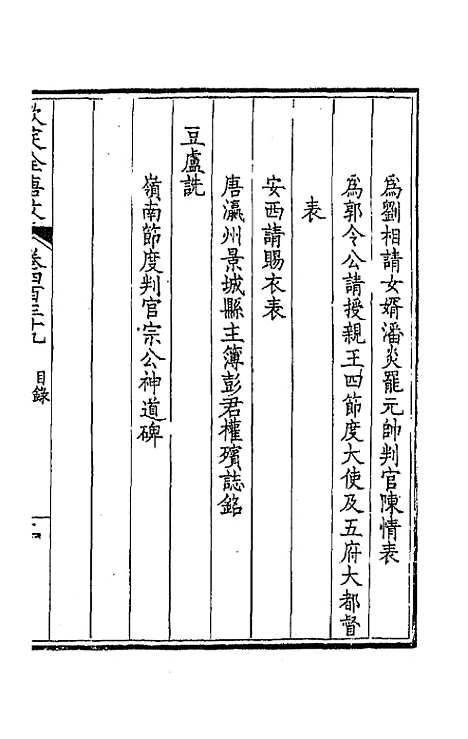 爲劉相請女婿潘炎罷元帥判官陳情表
爲郭令公請授親王四節度大使及五府大都督
表
安西請賜衣表
唐瀛州景城縣主簿彭君權殯誌銘
豆盧詵
嶺南節度判官宗公神道碑
欽定全唐文 卷四百三十九 目錄